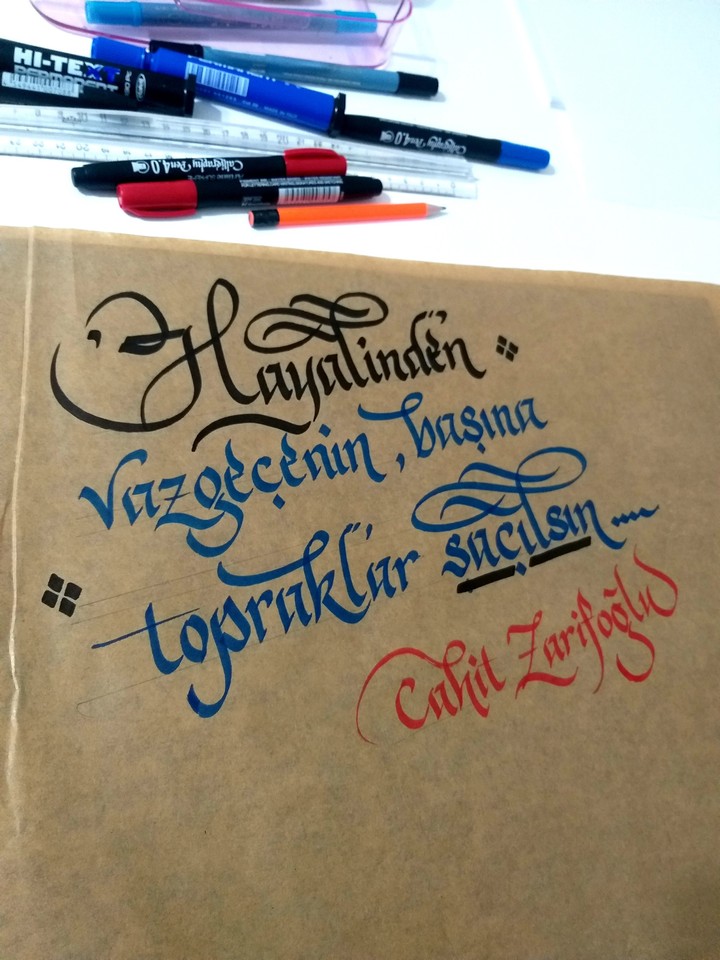 HI-TEXT
PERMANENT
Calligraphy Pen 4.0
Calligraphy Pen 4.0
Hayalinden
vazgeçenin, başına
topraklar saçılsın....
Cahit Zarifoğlu